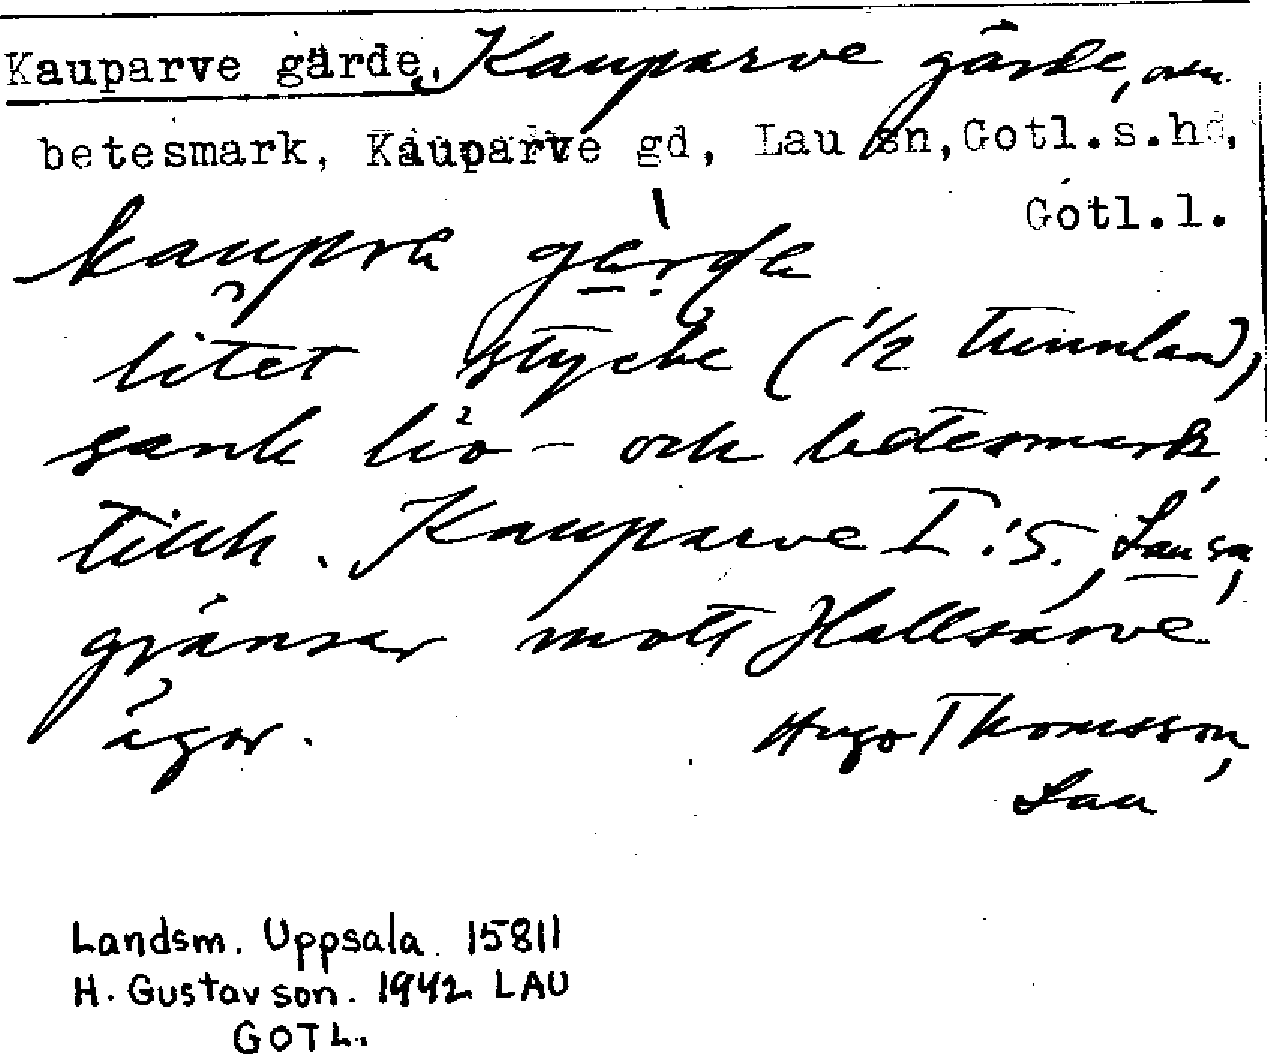 Kauparve gärde. Kauparve gärde,
betesmark, Kauparve gd, Lau sn, Gotl.s.hd,
Gotl.l.
litet stycke (1/2 tunnland),
sank hö- och betesmark
tillh. Kauparve I:5, Lau sn,
gränsar mott Hallsarve
ägor. Hugo Thomsson,
Lau
Landsm. Uppsala. 15811
H. Gustavson. 1942 LAU
GOTL.